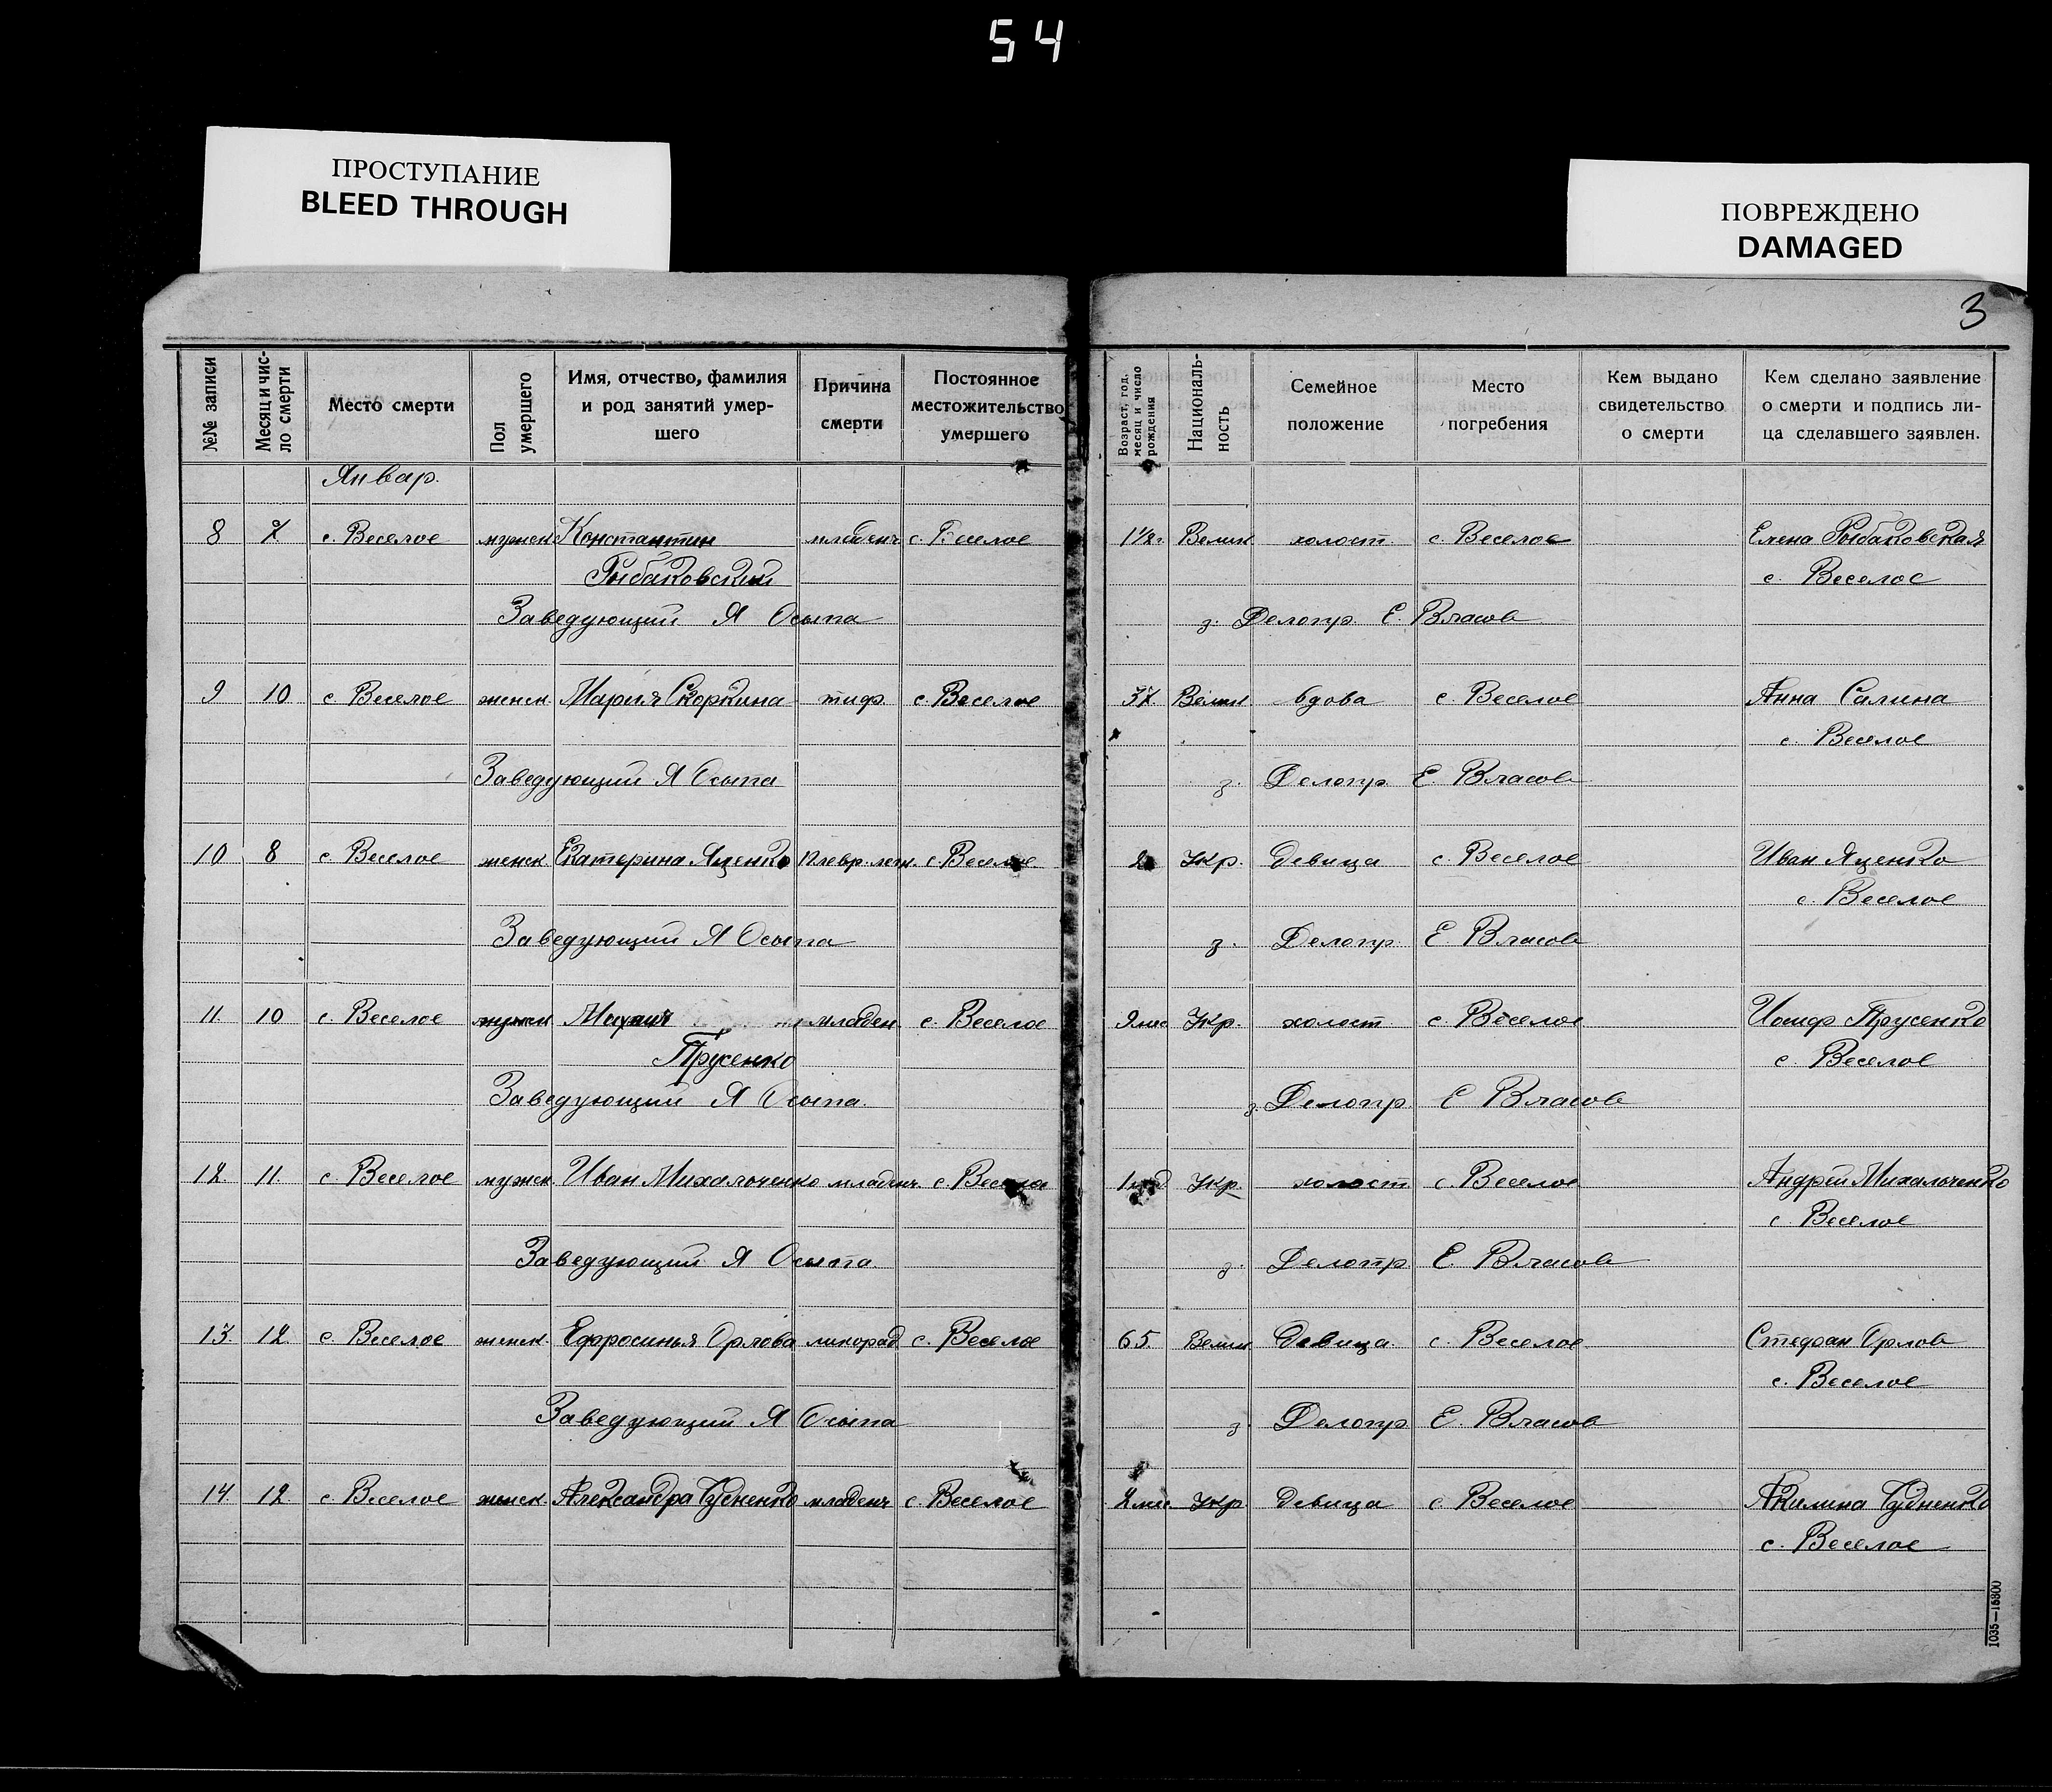 54
ПРОСТУПАНИЕ
BLEED THROUGH
ПОВРЕЖДЕНО
DAMAGED
3
№№ записи
Месяц и чис-
ло смерти
Место смерти
Пол
умершего
Имя, отчество, фамилия
и род занятий умер-
шего
Причина
смерти
Постоянное
местожительство
умершего
Возраст, год,
месяц и число
рождения
Националь-
ность
Семейное
положение
Место
погребения
Кем выдано
свидетельство
о смерти
Кем сделано заявление
о смерти и подпись ли-
ца сделавшего заявлен.
Январ.
8 7 с. Веселое мужск Константин младенч с. Веселое 1½г. Велик холост. с. Веселое Елена Рыбаковская
Рыбаковский с. Веселое
Заведующий Я Осыпа з. Делопр. Е. Власов
9 10 с Веселое женск. Мария Скоркина тиф. с. Веселое 37. Велик вдова с. Веселое Анна Салина
с. Веселое
Заведующий Я Осыпа з. Делопр. Е. Власов
10 8 с. Веселое женск Екатерина Яценко с. Веселое Укр. Девица с. Веселое Иван Яценко
с. Веселое
Заведующий Я Осыпа з. Делопр. Е Власов
11. 10 с. Веселое мужск младен. с. Веселое 9 мес Укр. холост с. Веселое Иосиф Прусенко
Прусенко с. Веселое
Заведующий Я Осыпа. з. Делопр. Е Власов
12. 11. с Веселое мужск. Иван Михальченко младенч. с. Веселое Укр. холост с. Веселое Андрей Михальченко
с. Веселое
Заведующий Я Осыпа з. Делопр Е. Власов
13. 12. с. Веселое женск. Ефросинья Орлова лихорад с. Веселое 65. Велик Девица. с. Веселое Стефан Орлов
с. Веселое
Заведующий Я Осыпа з. Делопр Е. Власов
14. 12. с. Веселое женск. Александра младенч с. Веселое 2 мес Укр Девица с Веселое Акилина
с. Веселое
1035—16800